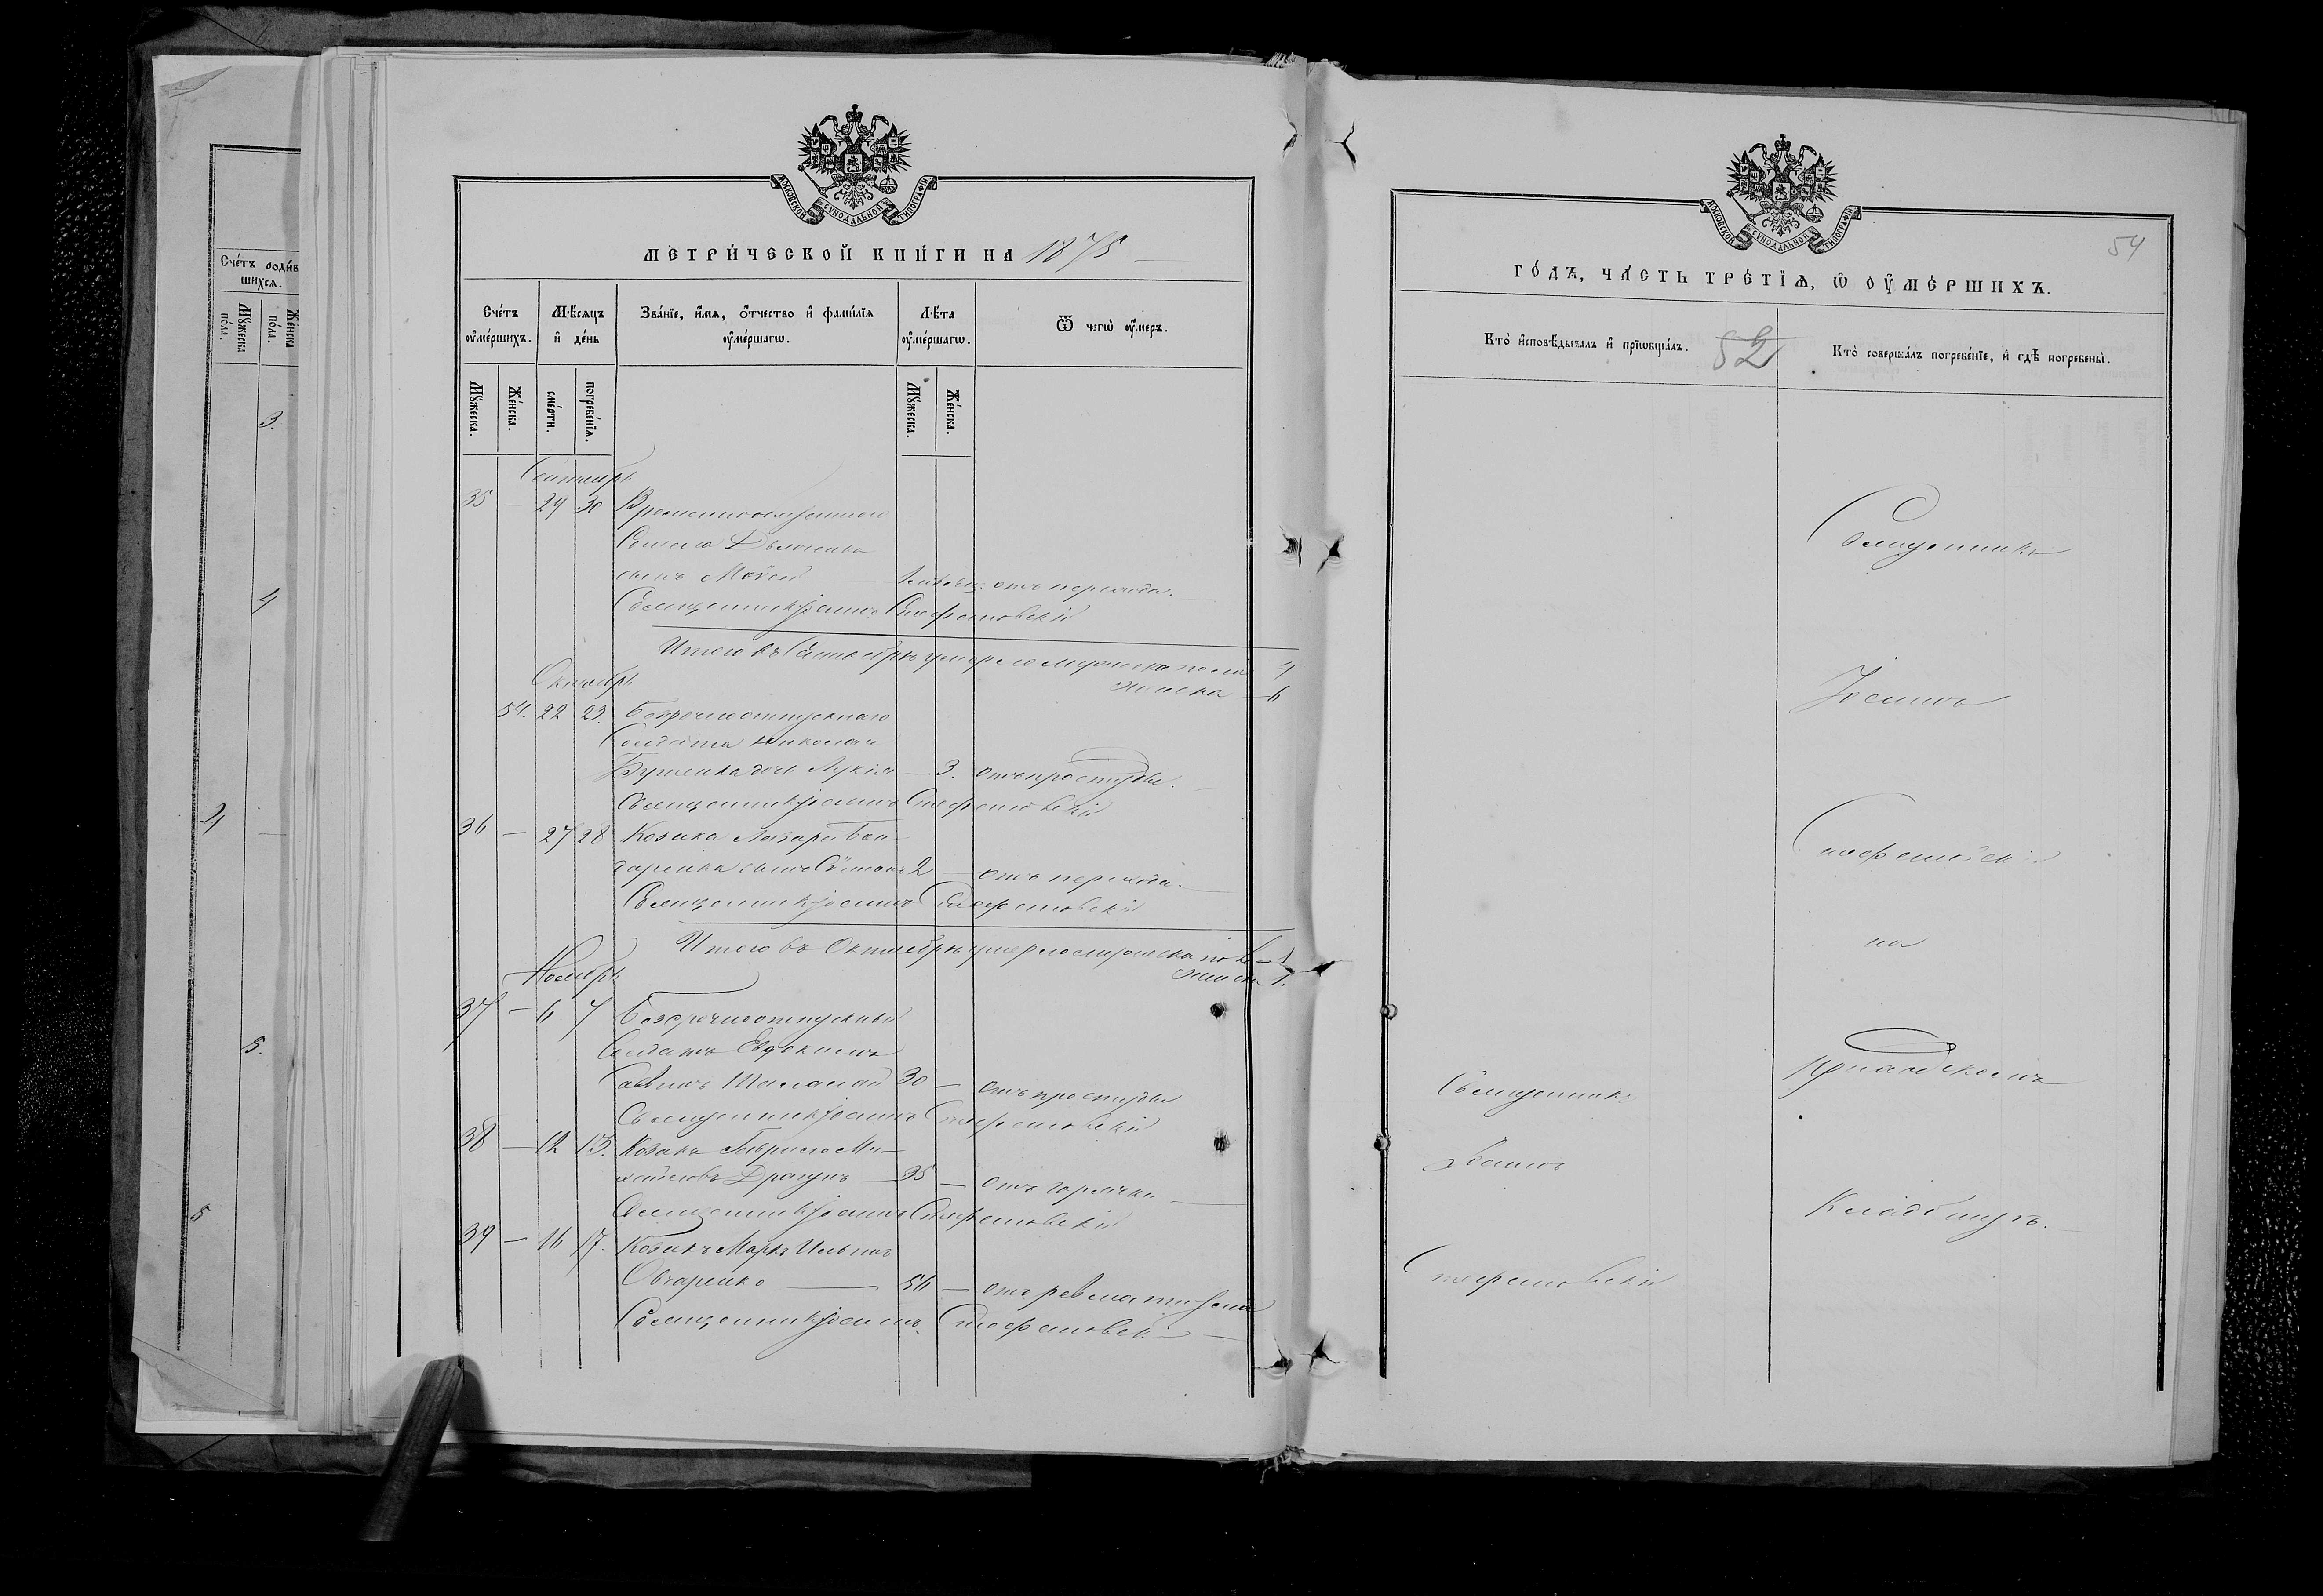 Счетъ родив
шихся.
Мужеска
пола.
Женска
пола.
3.
4
4
5.
5
МОСКОВСКОЙ СѴНОДАЛЬНОЙ ТИПОГРАФІИ
МЕТРИЧЕСКОЙ КНИГИ НА 1875
Счетъ
оумершихъ.
Мѣсяцъ
и день
Званіе, имя, отчество и фамилія
оумершагѡ.
Лѣта
оумершагѡ.
Ѿ чегѡ оумеръ.
Мужеска.
Женска.
смерти.
погребенія.
Мужеска.
Женска.
Сентябрь
35 — 29 30 Временнообязаннаго
сынъ Моѵсей — отъ перепода.
Священникъ Іоаннъ Стефановскій
Итого въ Сентябрѣ умерло мужеска пола 7
женска — 6
Октябрь
54. 22 23. Безсрочноотпускнаго
Солдата Николая
дочь Лукія — 3. отъ простуды.
Священникъ Іоаннъ Стефановскій
36 — 27 28 Козака Лазаря Бон-
даренка сынъ 2 — отъ перепода.
Священникъ Іоаннъ Стефановскій
Итого въ Октябрѣ умерло мужеска пола — 1
женска 1.
Ноябрь
37 — 6 7 Безсрочноотпускный
Солдатъ Евдокимъ
Саввинъ 30 — отъ простуды
Священникъ Іоаннъ Стефановскій
38 — 12 13. Козакъ Гаврило Ми-
хайловъ Драгунъ — 35 — отъ горячки
Священникъ Іоаннъ Стефановскій
39 — 16 17. Козакъ Маркъ Ильинъ
Овчаренко — 56 — отъ ревматизма
Священникъ Іоаннъ Стефановскій
МОСКОВСКОЙ СѴНОДАЛЬНОЙ ТИПОГРАФІИ
54
ГОДЪ, ЧАСТЬ ТРЕТІЯ, Ѡ ОУМЕРШИХЪ.
Кто исповѣдывалъ и пріѡбщалъ.
52
Кто совершалъ погребеніе, и гдѣ погребены.
Священникъ
Іоаннъ
Стефановскій
на
приходскомъ
Кладбищѣ.
Священникъ
Іоаннъ
Стефановскій